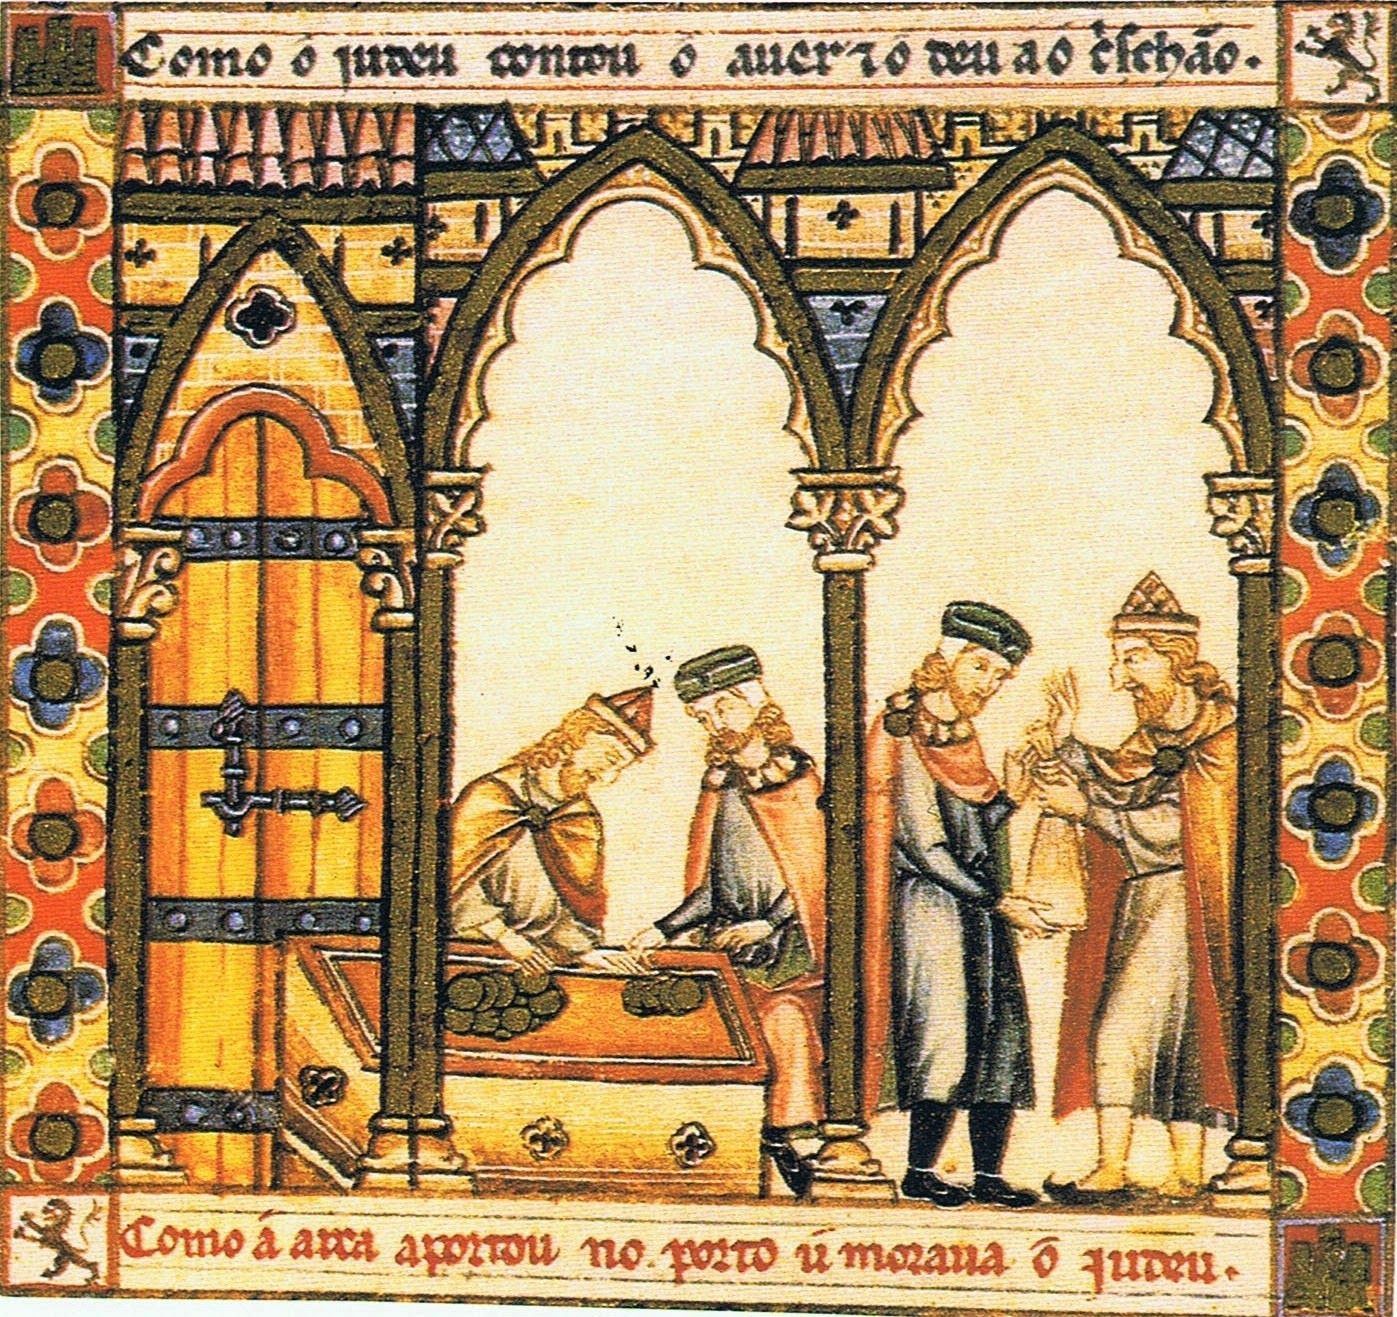 Como o iudeu contou o auer ⁊ o deu ao c̃schão.
Como á arca aportou no porto ú moraua o iudeu.